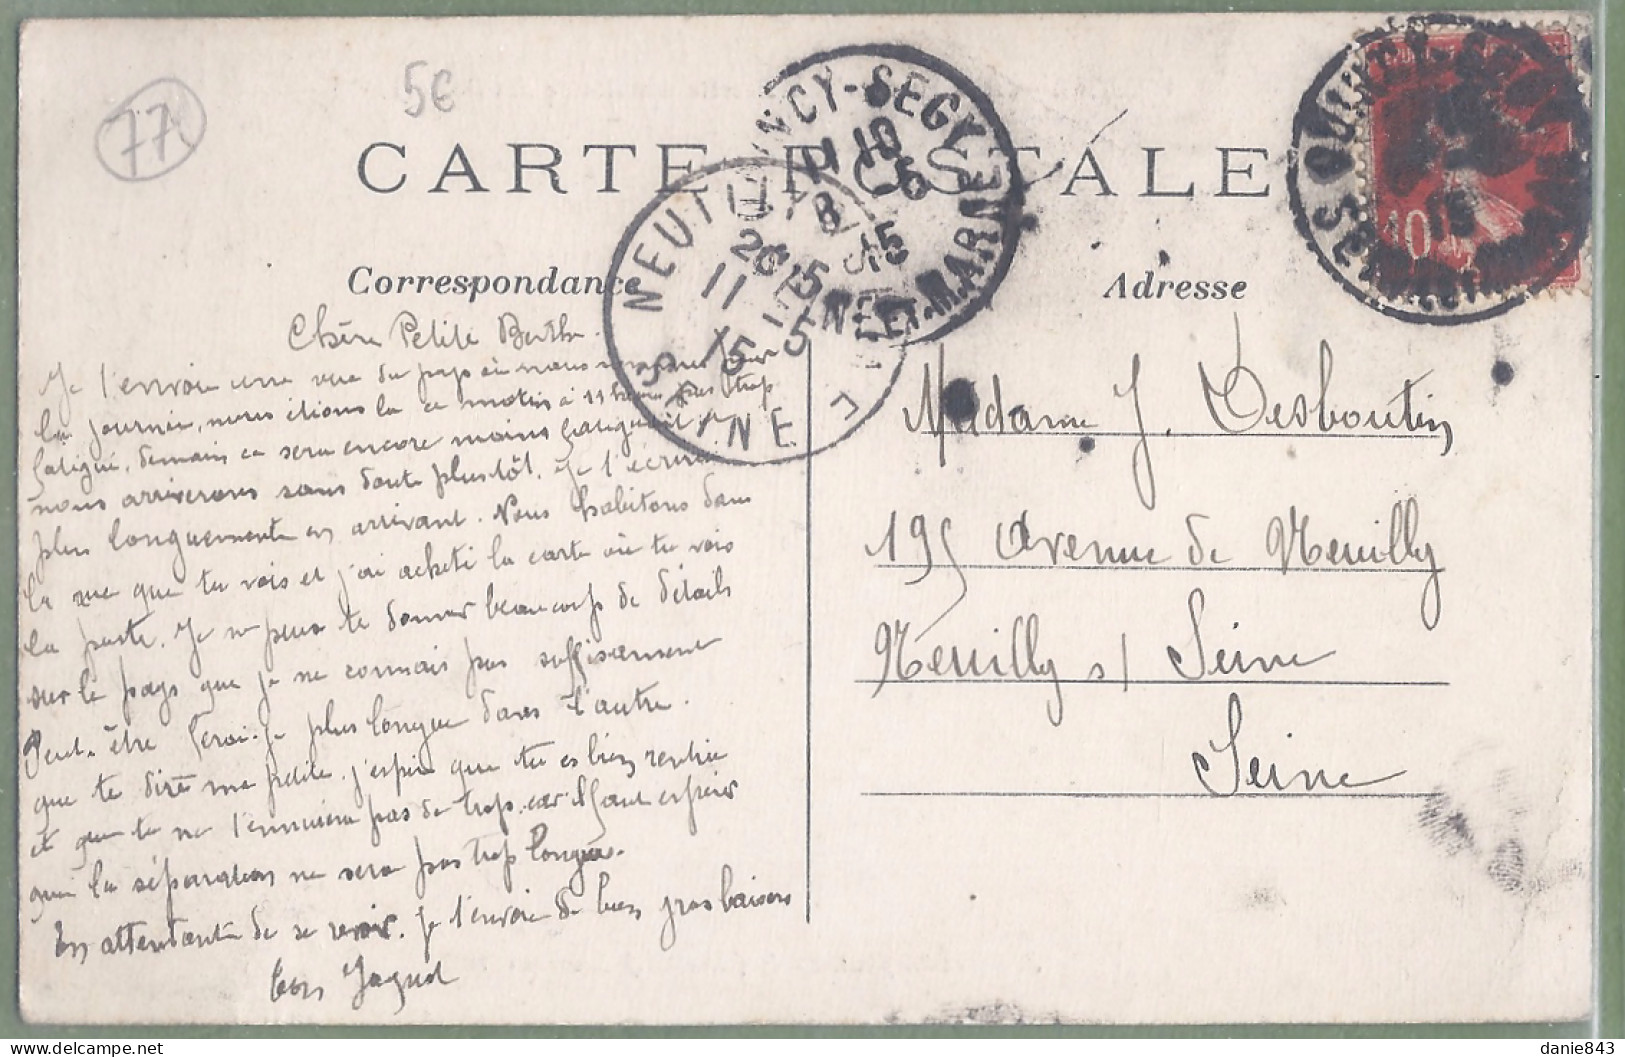 77
5€
CARTE POSTALE
QUINCY-SEGY
SEINE-ET-MARNE
NEUILLY S SEINE
20 15
11 - 5
15
10
Correspondance
Adresse
Chère Petite Berthe.
Je t'envoie une vue du pays où nous
la journée, nous étions là ce matin à 11 heures pas trop
fatigué, demain ce sera encore moins fatiguant
nous arriverons sans doute plus tôt. Je t'écrirai
plus longuement en arrivant. Nous habitons dans
la rue que tu vois et j'ai acheté la carte où tu vois
la poste. Je ne peux te donner beaucoup de détails
sur le pays que je ne connais pas suffisamment
Peut-être serai-je plus longue dans l'autre.
que te dire ma petite, j'espère que tu es bien rentrée
et que tu ne t'ennuiera pas de trop, car il faut espérer
que la séparation ne sera pas trop longue.
En attendant de se revoir, je t'envoie de bien gros baisers
ton
Madame J. Desboutin
195 Avenue de Neuilly
Neuilly s/ Seine
Seine
danie843